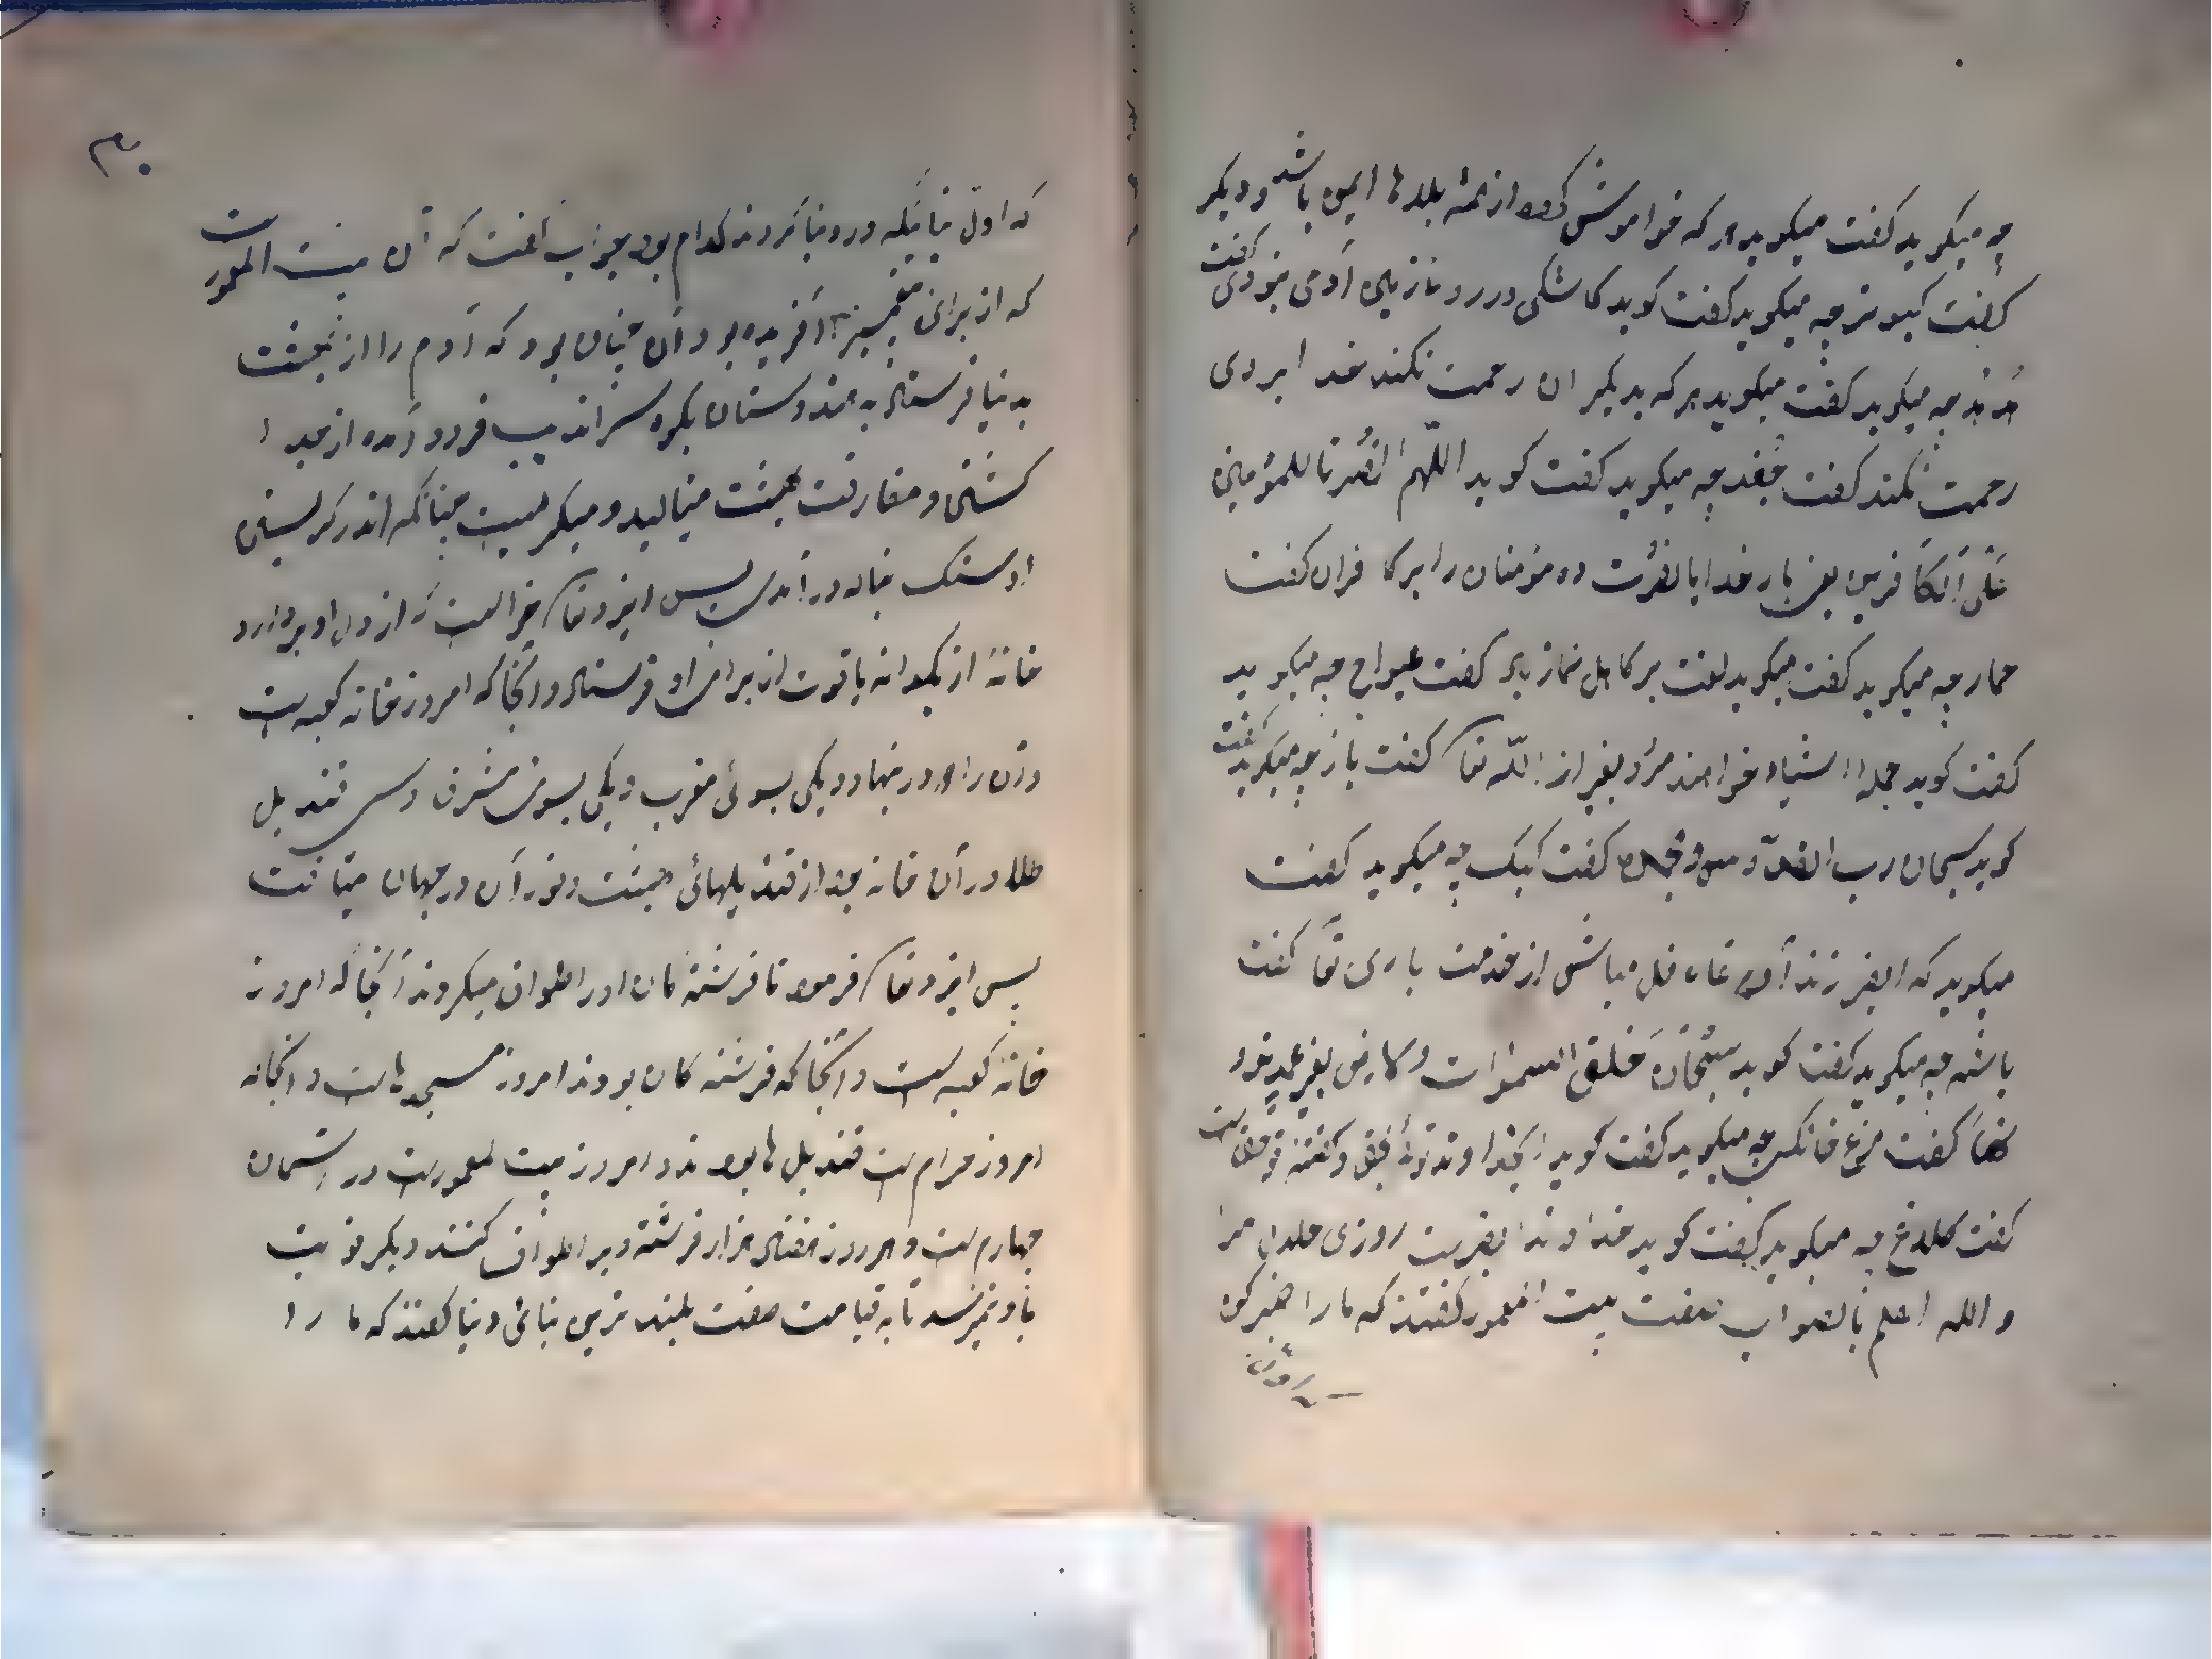 چه میکوید کفت میکوید هر که خواموش کردد از همۀ بلاها ایمن باشد و دیکر
کفت کبوتر چه میکوید کفت کوید کاشکی در رو نازنین آدمی نبودی کفت
هُدهُد چه میکوید کفت میکوید هر که بدیکران رحمت نکند خدا بر وی
رحمت نکند کفت جُغد چه میکوید کفت کوید اللّهم انصُرنا للمؤمنین
عَلَی اَلکَافرین یعنی بار خدایا نصُرت ده مؤمنان را بر کافران کفت
حمار چه میکوید کفت میکوید لعنت بر کاهل نماز باد کفت چه میکوید
کفت کوید جمله اشیاء خواهند مرد بغیر از اللّه تعا کفت باز چه میکوید کفت
کوید سبحان رب القدّوس کفت کبک چه میکوید کفت
میکوید که ایفرزند آدم غافل مباش از خدمت باری تعا کفت
باشه چه میکوید کفت کوید سبُحَانَ خَلَقَ السمَوٰات بغیر عمد
کفت مرغ خانکی چه میکوید کفت کوید ایخداوند توئی بحق و کفتۀ تو حق است
کفت کلاغ چه میکوید کفت کوید خداوندا بفریست روزی حلال مرا
و الله اعلم بالصواب صفت بیت المعمور کفتند که ما را خبر کن
که اول
۳۰
که اوّل بنائیکه در دنیا کردند کدام بود بجواب کفت که آن بیت المعمور است
که از برای آفریده بود و آن چنان بود که آدم را از بهشت
بدنیا فرستاد به هندوستان بکوه سراندیب فرود آمده از جدا
کشتن و مفارقت بهشت مینالید و میکریست چنانکه اندر کریستن
او سنک بناله در آمدی پس ایزد تعا خواست که از دل او بردارد
خانۀ از یکدانه یاقوت از برای او فرستاد و آنجا که امروز خانه کعبه است
و آن را دو در نهاد و یکی بسوئی مغرب و یکی بسوی مشرق و سی قندیل
طلا در آن خانه بود از قندیلهائی بهشت و نور آن در جهان میتافت
پس ایزد تعا فرمود تا فرشتۀ کان او را طواف میکردند آنجا که امروز
خانۀ کعبه است و آنجا که فرشته کان بودند امروز مسجدهاست و آنجا که
امروز حرام است قندیل ها بودند و امروز بیت المعمور است در آسمان
چهارم است و هر روز هفتاد هزار فرشته ویرا طواف کنند دیکر نوبت
باو نمیرسد تا به قیامت صفت بلند ترین بنائی دنیا کفتند که ما را